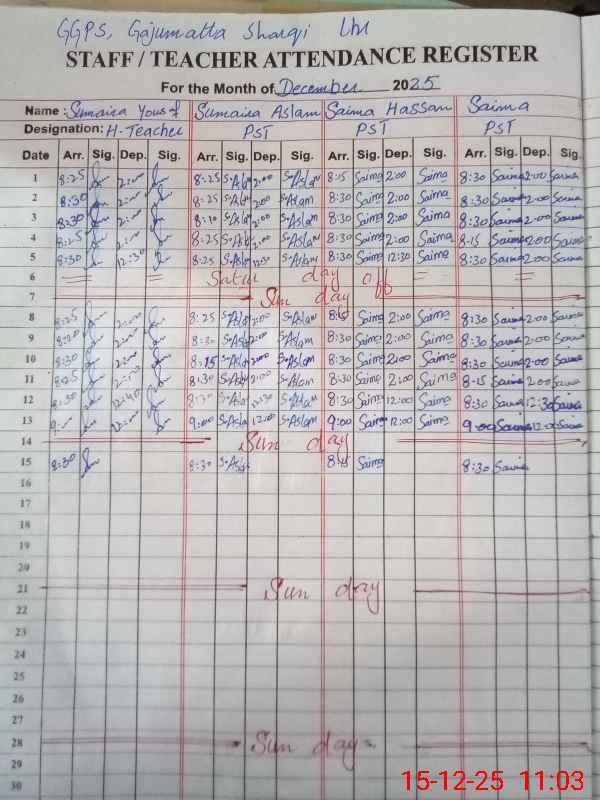 GGPS, Gajumatta Sharqi Lhr
STAFF / TEACHER ATTENDANCE REGISTER
For the Month of December 2025
Name : Sumaira Yousaf Sumaira Aslam Saima Hassan Saima
Designation: H-Teacher PST PST PST
Date Arr. Sig. Dep. Sig. Arr. Sig. Dep. Sig. Arr. Sig. Dep. Sig. Arr. Sig. Dep. Sig.
1 8:25 2:00 8:25 S-Aslam 2:00 S-Aslam 8:15 Saima 2:00 Saima 8:30 Saima 2:00 Saima
2 8:30 2:00 8:25 S-Aslam 2:00 S-Aslam 8:30 Saima 2:00 Saima 8:30 Saima 2:00 Saima
3 8:30 2:00 S-Aslam 2:00 S-Aslam 8:30 Saima 2:00 Saima 8:30 Saima 2:00 Saima
4 8:25 2:00 8:25 S-Aslam 2:00 S-Aslam 8:30 Saima 2:00 Saima 8:15 Saima 2:00 Saima
5 8:30 12:30 8:25 S-Aslam 12:30 S-Aslam 8:30 Saima 12:30 Saima 8:30 Saima 2:00 Saima
6 Satur day off
7 Sun day
8 8:25 2:00 8:25 S-Aslam 2:00 S-Aslam Saima 2:00 Saima 8:30 Saima 2:00 Saima
9 2:00 8:30 S-Aslam 2:00 S-Aslam 8:30 Saima 2:00 Saima 8:30 Saima 2:00 Saima
10 8:30 2:00 8:15 S-Aslam 2:00 S-Aslam 8:30 Saima 2:00 Saima 8:30 Saima 2:00 Saima
11 8:25 2:00 8:30 S-Aslam 2:00 S-Aslam 8:30 Saima 2:00 Saima 8:15 Saima 2:00 Saima
12 8:30 8:30 S-Aslam S-Aslam 8:30 Saima 12:00 Saima 8:30 Saima 12:30 Saima
13 12:00 9:00 S-Aslam 12:00 S-Aslam 9:00 Saima 12:00 Saima 9:00 Saima 12:00 Saima
14 Sun day
15 8:30 8:30 S-Aslam 8:15 Saima 8:30 Saima
16
17
18
19
20
21 Sun day
22
23
24
25
26
27
28 Sun day
29
30
15-12-25 11:03